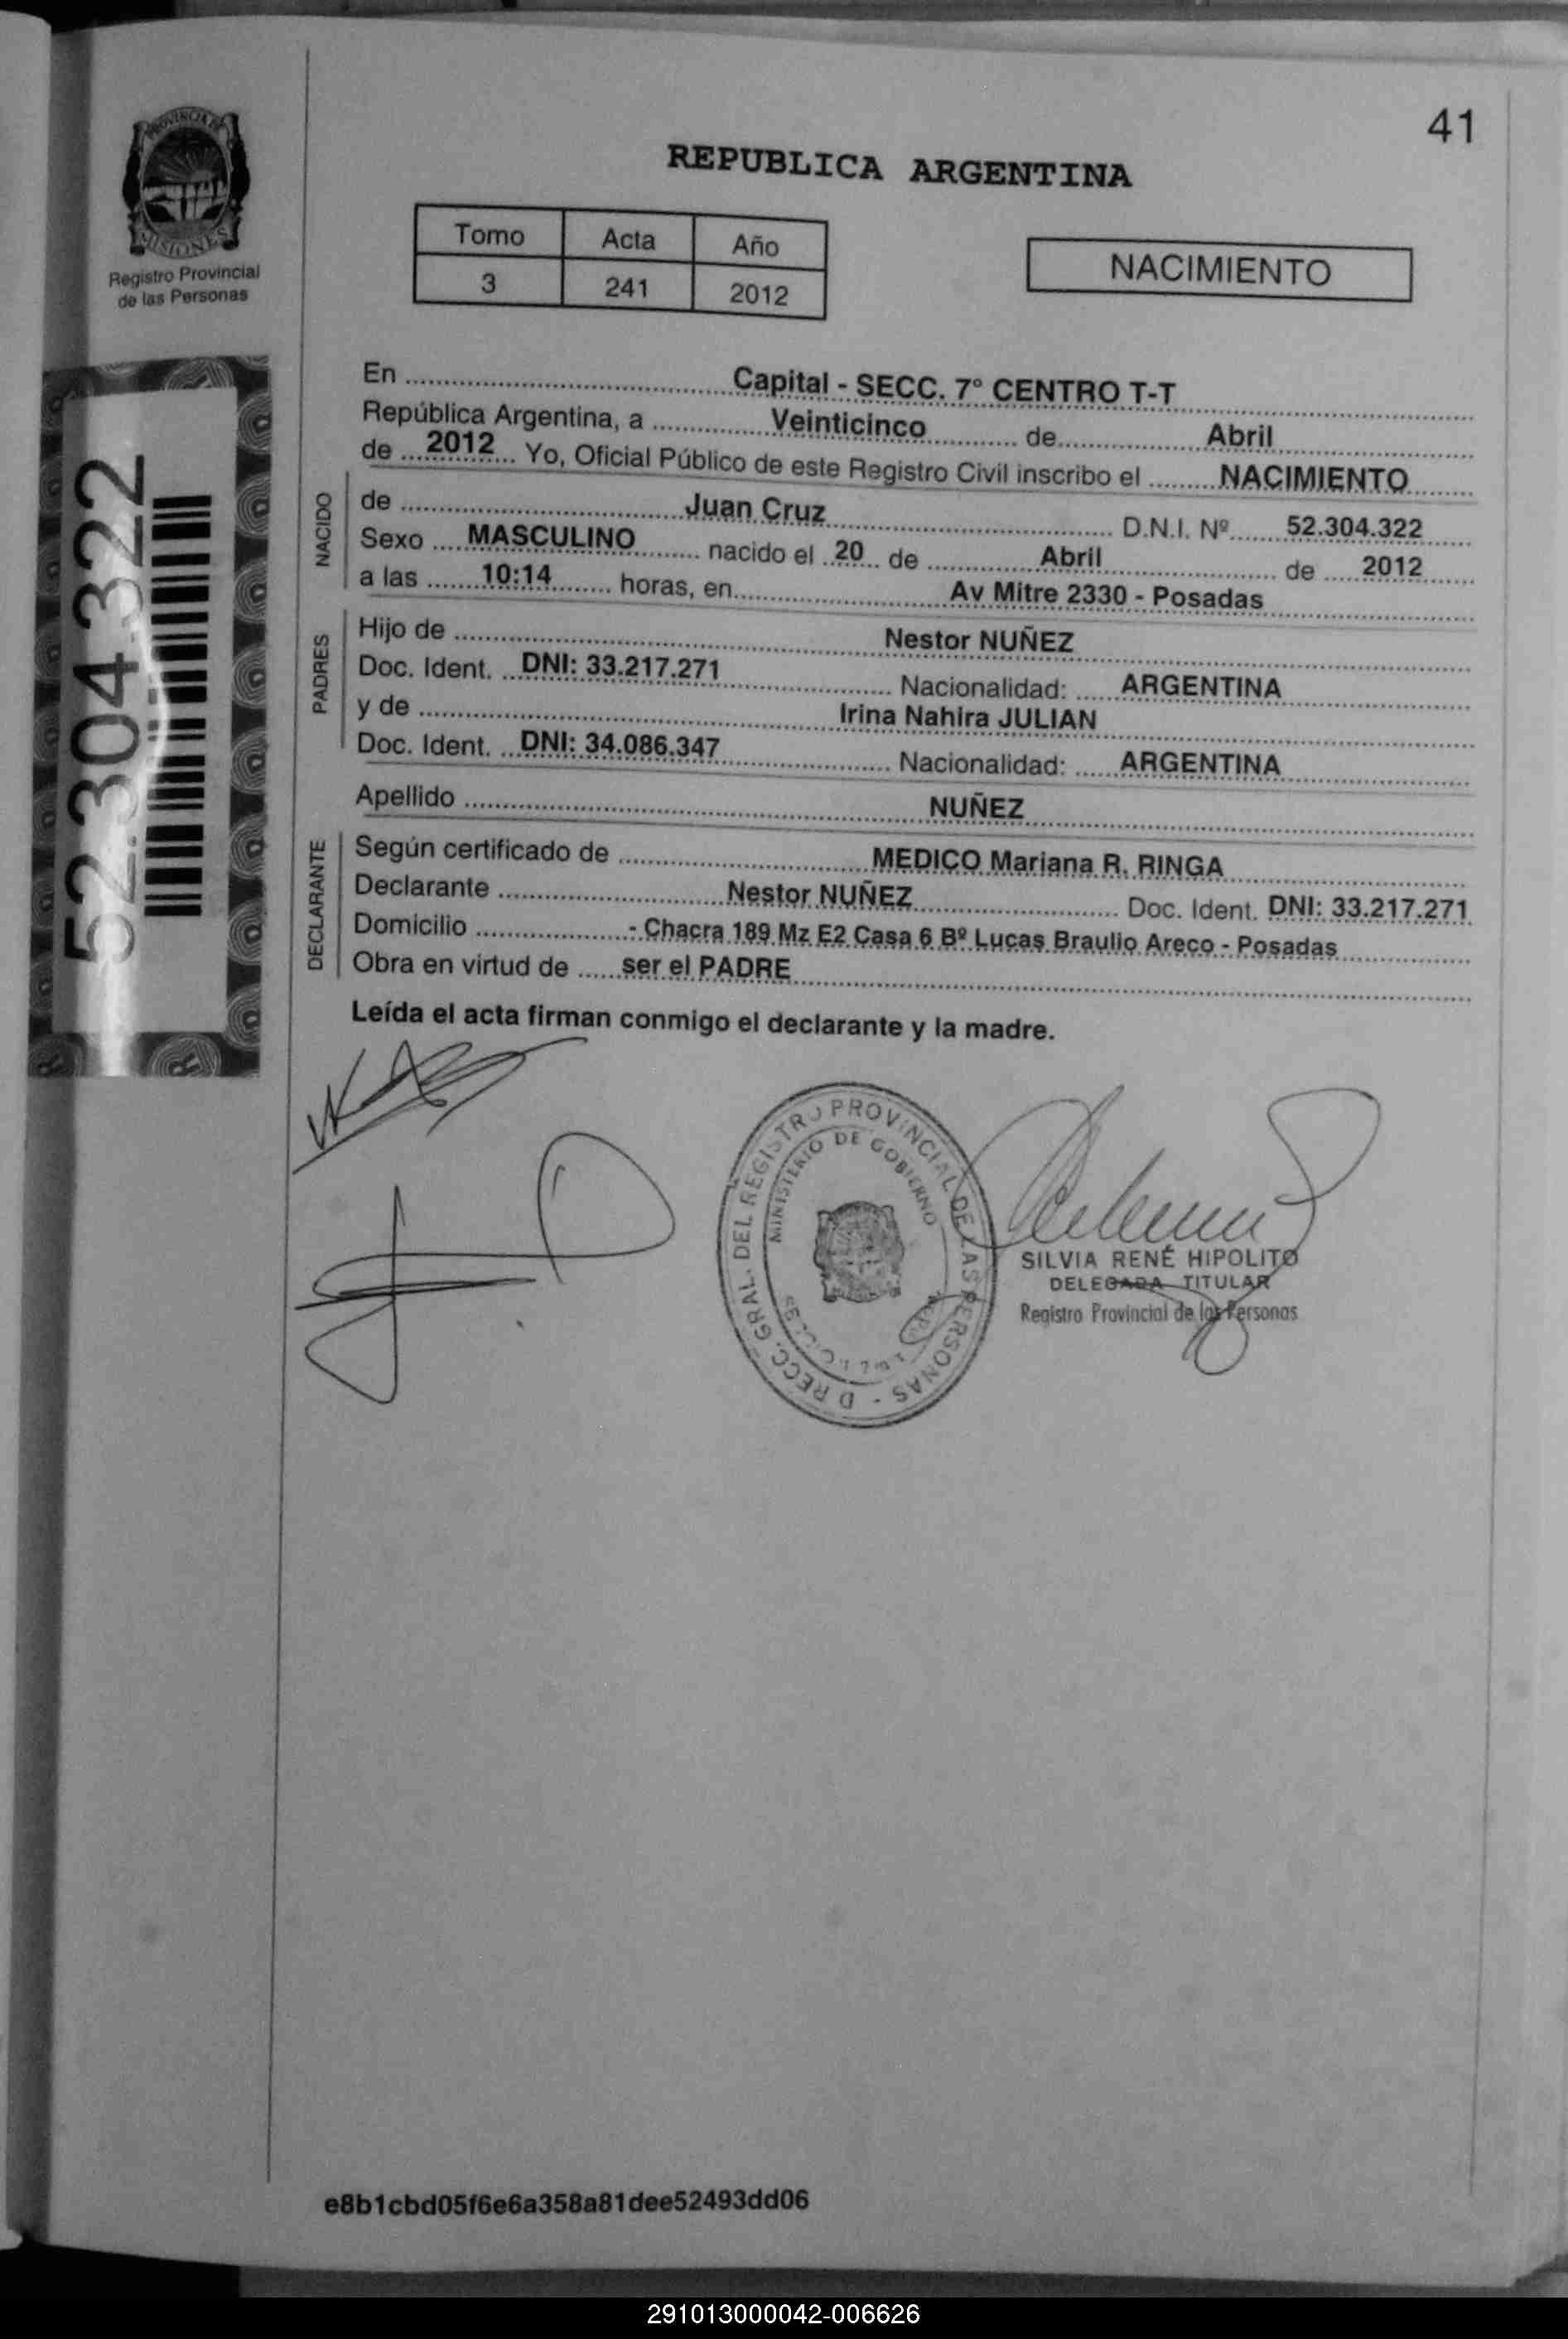 41
PROVINCIA DE
MISIONES
Registro Provincial
de las Personas
52.304.322
REPUBLICA ARGENTINA
Tomo Acta Año
3 241 2012
NACIMIENTO
En Capital - SECC. 7° CENTRO T-T
República Argentina, a Veinticinco de Abril
de 2012 Yo, Oficial Público de este Registro Civil inscribo el NACIMIENTO
NACIDO
de Juan Cruz D.N.I. Nº 52.304.322
Sexo MASCULINO nacido el 20 de Abril de 2012
a las 10:14 horas, en Av Mitre 2330 - Posadas
PADRES
Hijo de Nestor NUÑEZ
Doc. Ident. DNI: 33.217.271 Nacionalidad: ARGENTINA
y de Irina Nahira JULIAN
Doc. Ident. DNI: 34.086.347 Nacionalidad: ARGENTINA
Apellido NUÑEZ
DECLARANTE
Según certificado de MEDICO Mariana R. RINGA
Declarante Nestor NUÑEZ Doc. Ident. DNI: 33.217.271
Domicilio - Chacra 189 Mz E2 Casa 6 Bº Lucas Braulio Areco - Posadas
Obra en virtud de ser el PADRE
Leída el acta firman conmigo el declarante y la madre.
DIRECC. GRAL. DEL REGISTRO PROVINCIAL DE LAS PERSONAS -
MINISTERIO DE GOBIERNO
SILVIA RENÉ HIPOLITO
DELEGADA TITULAR
Registro Provincial de las Personas
e8b1cbd05f6e6a358a81dee52493dd06
291013000042-006626